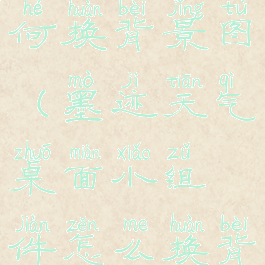 hé huàn bèi jǐng tú
何换背景图
mò jì tiān qì
（墨迹天气
zhuō miàn xiǎo zǔ
桌面小组
jiàn zěn me huàn bèi
件怎么换背